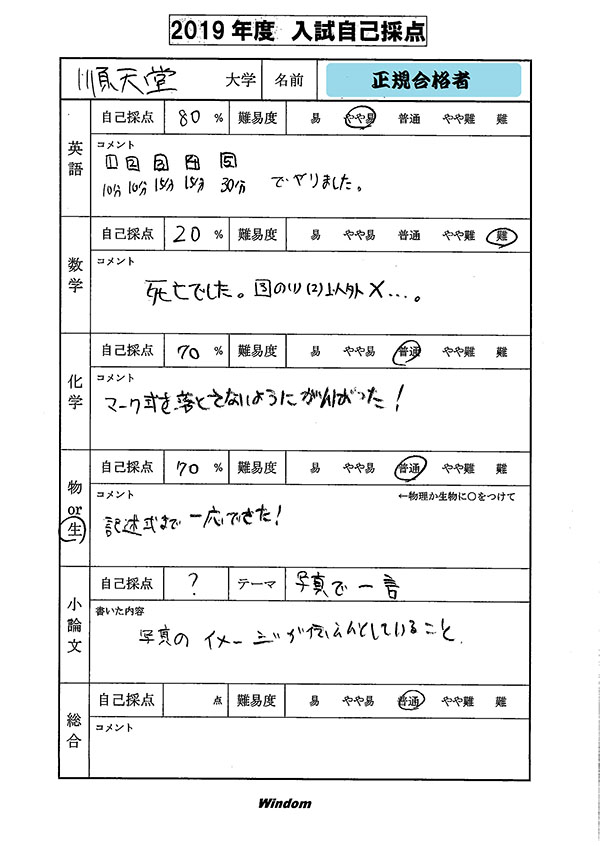 2019年度 入試自己採点
順天堂 大学 名前 正規合格者
英語 自己採点 80 % 難易度 易 やや易 普通 やや難 難
コメント
1 2 3 4 5
10分 10分 15分 15分 30分 でやりました。
数学 自己採点 20 % 難易度 易 やや易 普通 やや難 難
コメント
死亡でした。3の(1)(2)以外×…。
化学 自己採点 70 % 難易度 易 やや易 普通 やや難 難
コメント
マーク式を落とさないようにがんばった!
物or生 自己採点 70 % 難易度 易 やや易 普通 やや難 難
コメント ←物理か生物に○をつけて
記述式まで一応できた!
小論文 自己採点 ? テーマ 写真で一言
書いた内容
写真のイメージが伝えんとしていること.
総合 自己採点 点 難易度 易 やや易 普通 やや難 難
コメント
Windom